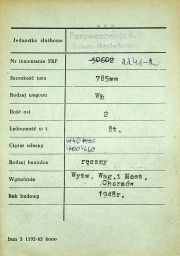 Jednostka służbowa
Parowozownia K.D.
Bytom-Maciejkowice
Nr inwentarza PKP
50602 2241-R
Szerokość toru
785mm
Rodzaj wagonu
Wh
Ilość osi
2
Ładowność w t
8t.
Ciężar własny
Rodzaj hamulca
ręczny
Wytwórnia
Wytw. Wag. i Most.
Chorzów
Rok budowy
1948r.
bzm 3 1192-62 6000